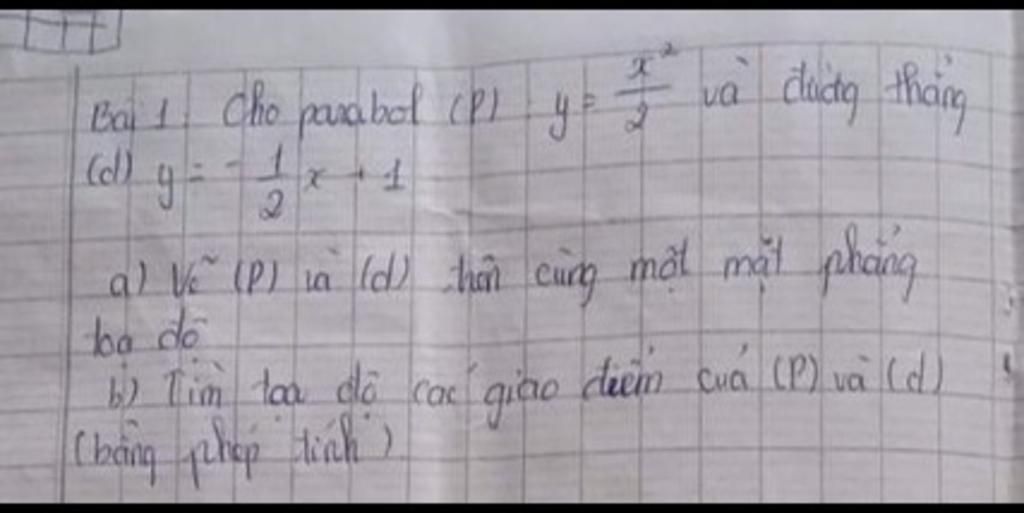 Bài 1. Cho parabol (P) y = x²/2 và đường thẳng
(d) y = -1/2 x + 1
a) Vẽ (P) và (d) trên cùng một mặt phẳng
tọa độ
b) Tìm tọa độ các giao điểm của (P) và (d)
(bằng phép tính)